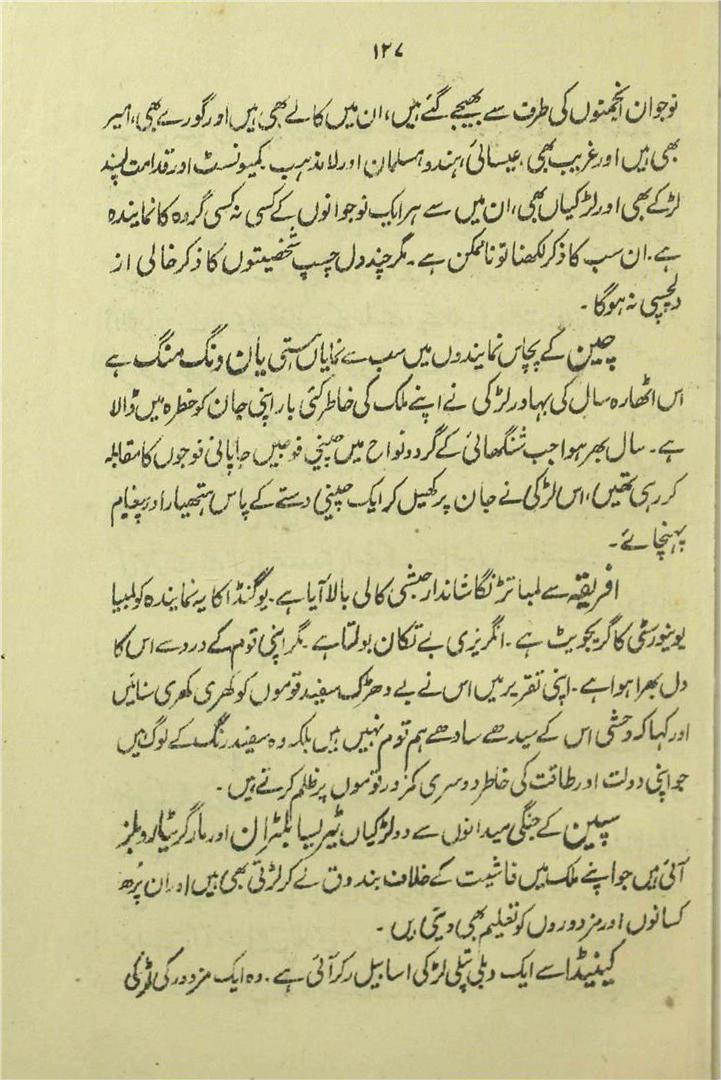 ۱۲۷
نوجوان انجمنوں کی طرف سے بھیجے گئے ہیں، ان میں کالے بھی ہیں اور گورے بھی، امیر
بھی ہیں اور غریب بھی، عیسائی، ہندو مسلمان اور لا مذہب کمیونسٹ اور قدامت پسند
لڑکے بھی اور لڑکیاں بھی، ان میں سے ہر ایک نوجوانوں کے کسی نہ کسی گروہ کا نمایندہ
ہے۔ ان سب کا ذکر لکھنا تو نا ممکن ہے۔ مگر چند دل چسپ شخصیتوں کا ذکر خالی از
دلچسپی نہ ہوگا۔
چین کے پچاس نمایندوں میں سب سے نمایاں ہستی یان ونگ منگ ہے
اس اٹھارہ سال کی بہادر لڑکی نے اپنے ملک کی خاطر کئی بار اپنی جان کو خطرہ میں ڈالا
ہے۔ سال بھر ہوا جب شنگھائی کے گرد و نواح میں چینی فوجیں جاپانی فوجوں کا مقابلہ
کر رہی تھیں، اس لڑکی نے جان پر کھیل کر ایک چینی دستے کے پاس ہتھیار اور پیغام
پہنچائے۔
افریقہ سے لمبا تڑنگا شاندار حبشی کالی بالا آیا ہے۔ یوگنڈا کا یہ نمایندہ کولمبیا
یونیورسٹی کا گریجویٹ ہے۔ انگریزی بے تکان بولتا ہے۔ مگر اپنی قوم کے درد سے اس کا
دل بھرا ہوا ہے۔ اپنی تقریر میں اس نے بے دھڑک سفید قوموں کو کھری کھری سنائیں
اور کہا کہ وحشی اس کے سیدھے سادھے ہم قوم نہیں ہیں بلکہ وہ سفید رنگ کے لوگ ہیں
جو اپنی دولت اور طاقت کی خاطر دوسری کمزور قوموں پر ظلم کرتے ہیں۔
سپین کے جنگی میدانوں سے دو لڑکیاں ٹیریسا بلٹران اور مارگریٹا روبلز
آئی ہیں جو اپنے ملک میں فاشیت کے خلاف بندوق لے کر لڑتی بھی ہیں اور ان پڑھ
کسانوں اور مزدوروں کو تعلیم بھی دیتی ہیں۔
کینیڈا سے ایک دبلی پتلی لڑکی اسابیل رکر آئی ہے۔ وہ ایک مزدور کی لڑکی